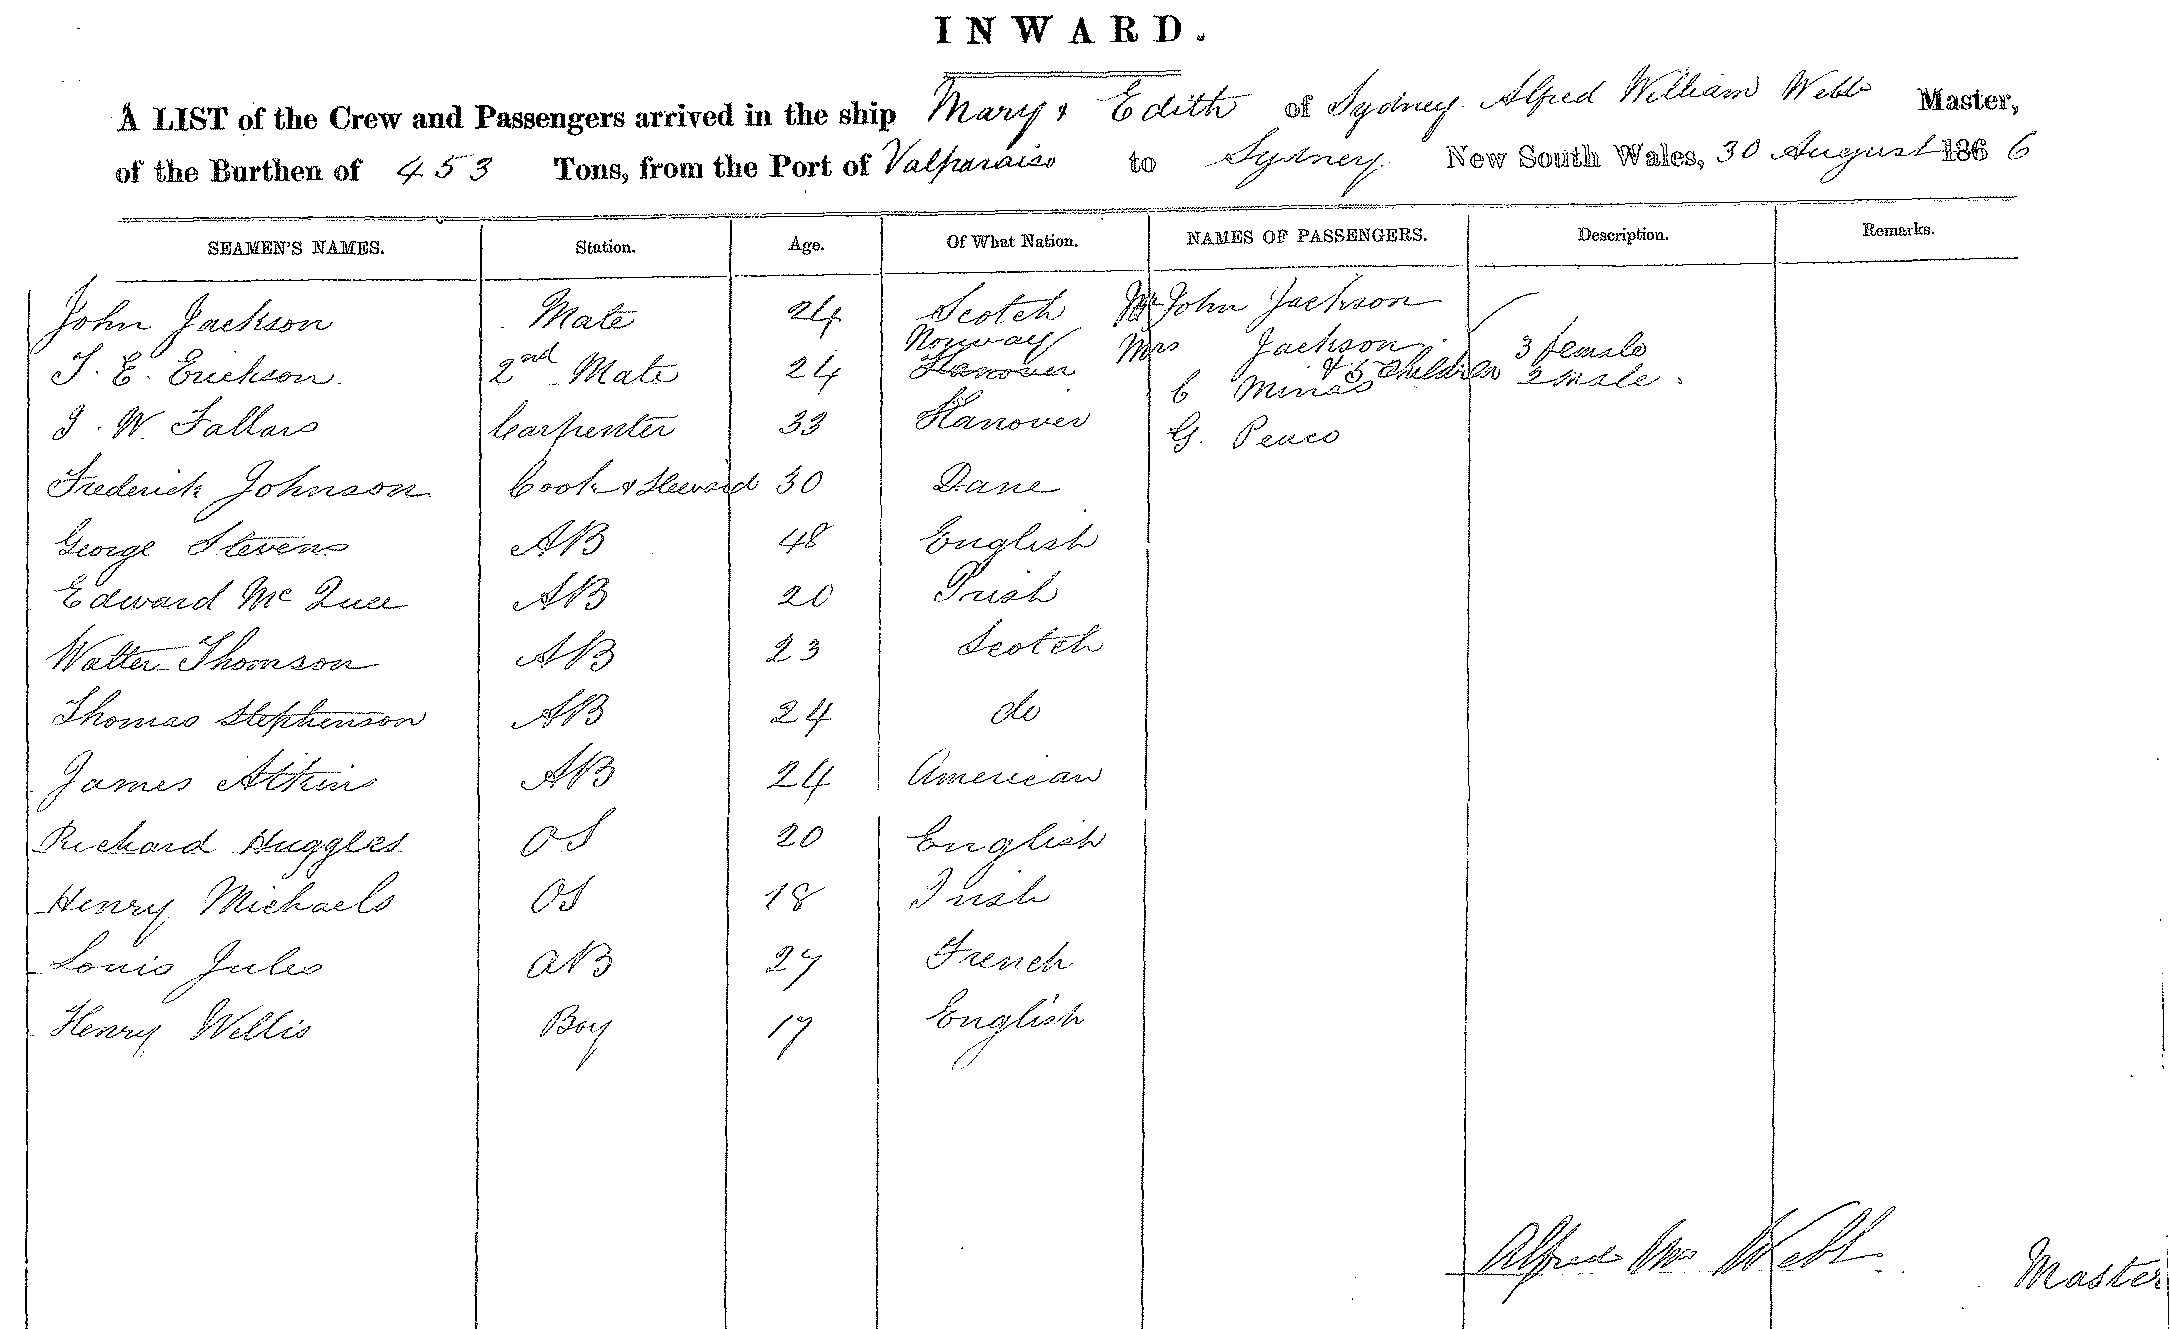 INWARD.
A LIST of the Crew and Passengers arrived in the ship Mary & Edith of Sydney Alfred William Webb Master,
of the Burthen of 453 Tons, from the Port of Valparaiso to Sydney New South Wales, 30 August 1866
SEAMEN'S NAMES. Station. Age. Of What Nation. NAMES OF PASSENGERS. Description. Remarks.
John Jackson Mate 24 Scotch Mr John Jackson
Norway Mrs Jackson 3 female
T. E. Erickson 2nd Mate 24 Hanover & 5 Children 2 male
C Minas
J. W. Fallars Carpenter 33 Hanover G. Peace
Frederick Johnson Cook & Steward 30 Dane
George Stevens AB 48 English
Edward Mc Quee AB 20 Irish
Walter Thomson AB 23 Scotch
Thomas Stephenson AB 24 do
James Atkins AB 24 American
Richard Huggles OS 20 English
Henry Michaels OS 18 Irish
Louis Jules AB 27 French
Henry Wellis Boy 17 English
Alfred Wm Webb Master